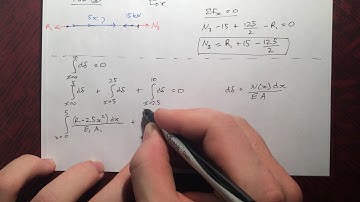 ΣFx = 0
R₁ 5x 15kN N₃
N₃ - 15 + 125/2 - R₁ = 0
N₃ = R₁ + 15 - 125/2
∫_{x=0}^{10} dδ = 0
∫_{x=0}^{5} dδ + ∫_{x=5}^{2.5} dδ + ∫_{x=2.5}^{10} dδ = 0
dδ = N(x) dx / E A
∫_{x=0}^{5} (R₁ - 2.5x²) dx / E₁ A₁ +